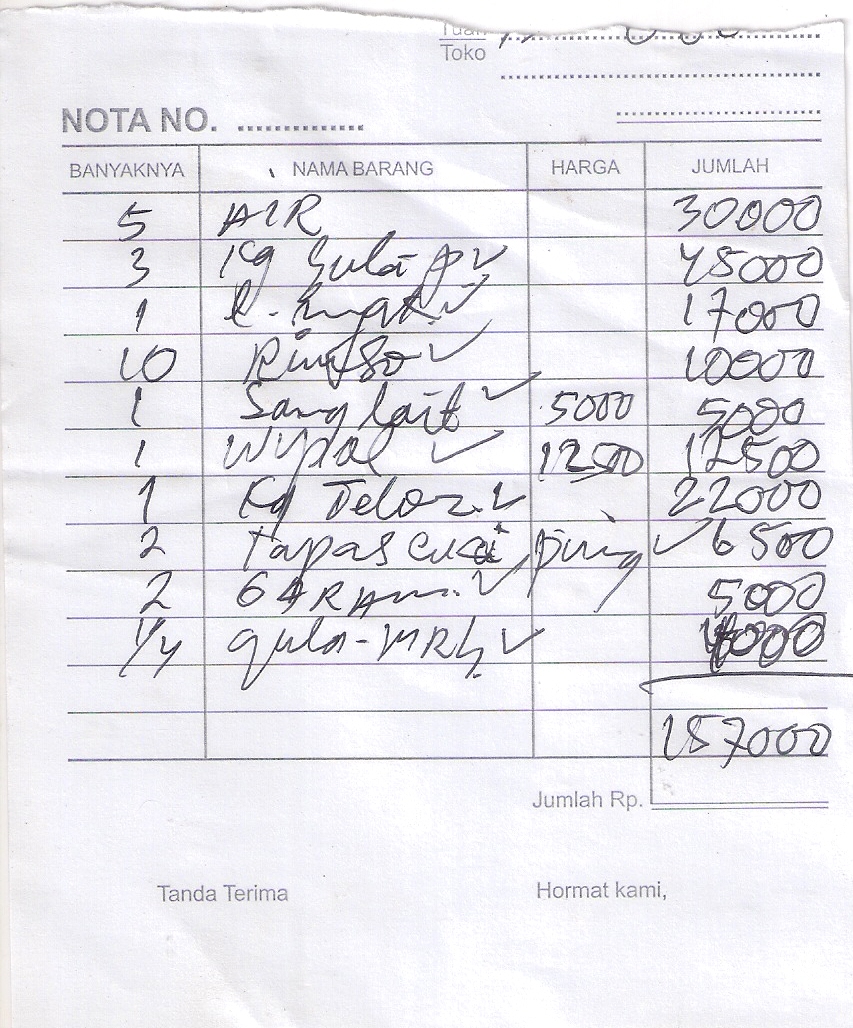 Tuan
Toko
NOTA NO. ..............
BANYAKNYA NAMA BARANG HARGA JUMLAH
5 AIR 30000
3 Kg Gula p 45000
1 17000
10 Rinso 10000
1 Sanglait 5000 5000
1 Wypol 12500 12500
1 Kg Telor 22000
2 tapas cuci piring 6500
2 GARAM 5000
1/4 gula-MRh 4000
157000
Jumlah Rp.
Tanda Terima Hormat kami,